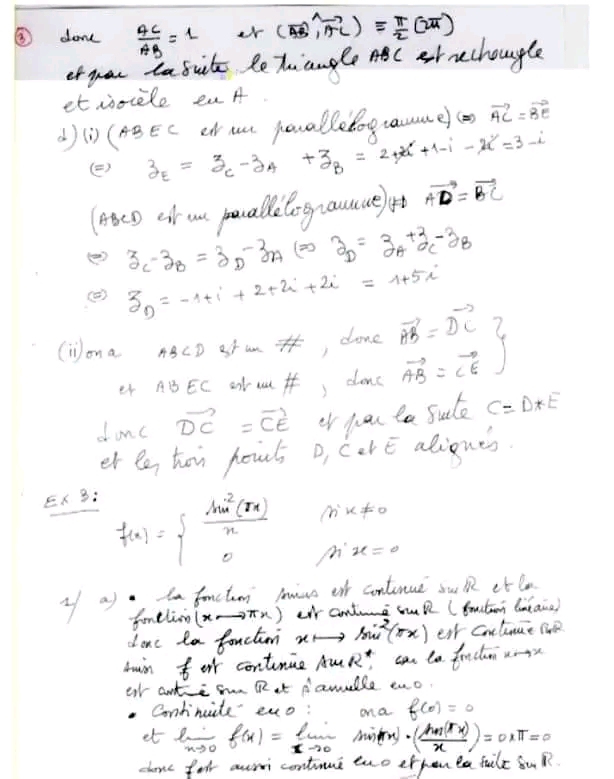 ③ donc AC/AB = 1 et (AB→, AC→) ≡ π/2 [2π]
et par la suite le triangle ABC est rectangle
et isocèle en A.
d) (i) (ABEC est un parallélogramme) ⇔ AC→ = BE→
⇔ z_E = z_C - z_A + z_B = 2+2i +1-i -2i = 3-i
(ABCD est un parallélogramme) ⇔ AD→ = BC→
⇔ z_C - z_B = z_D - z_A ⇔ z_D = z_A + z_C - z_B
⇔ z_D = -1+i + 2+2i + 2i = 1+5i
(ii) on a ABCD est un #, donc AB→ = DC→ }
et ABEC est un #, donc AB→ = CE→
donc DC→ = CE→ et par la suite C = D*E
et les trois points D, C et E alignés.
EX 3:
f(x) = { sin²(πx)/x si x ≠ 0
0 si x = 0
1/ a) • la fonction sinus est continue sur ℝ et la
fonction (x ⟼ πx) est continue sur ℝ (fonction linéaire)
donc la fonction x ⟼ sin²(πx) est continue sur ℝ
ainsi f est continue sur ℝ*, car la fonction x ⟼ x
est continue sur ℝ et s'annulle en 0.
• Continuité en 0 : on a f(0) = 0
et lim x→0 f(x) = lim x→0 sin(πx) · (sin(πx)/x) = 0 × π = 0
donc f est aussi continue en 0 et par la suite sur ℝ.